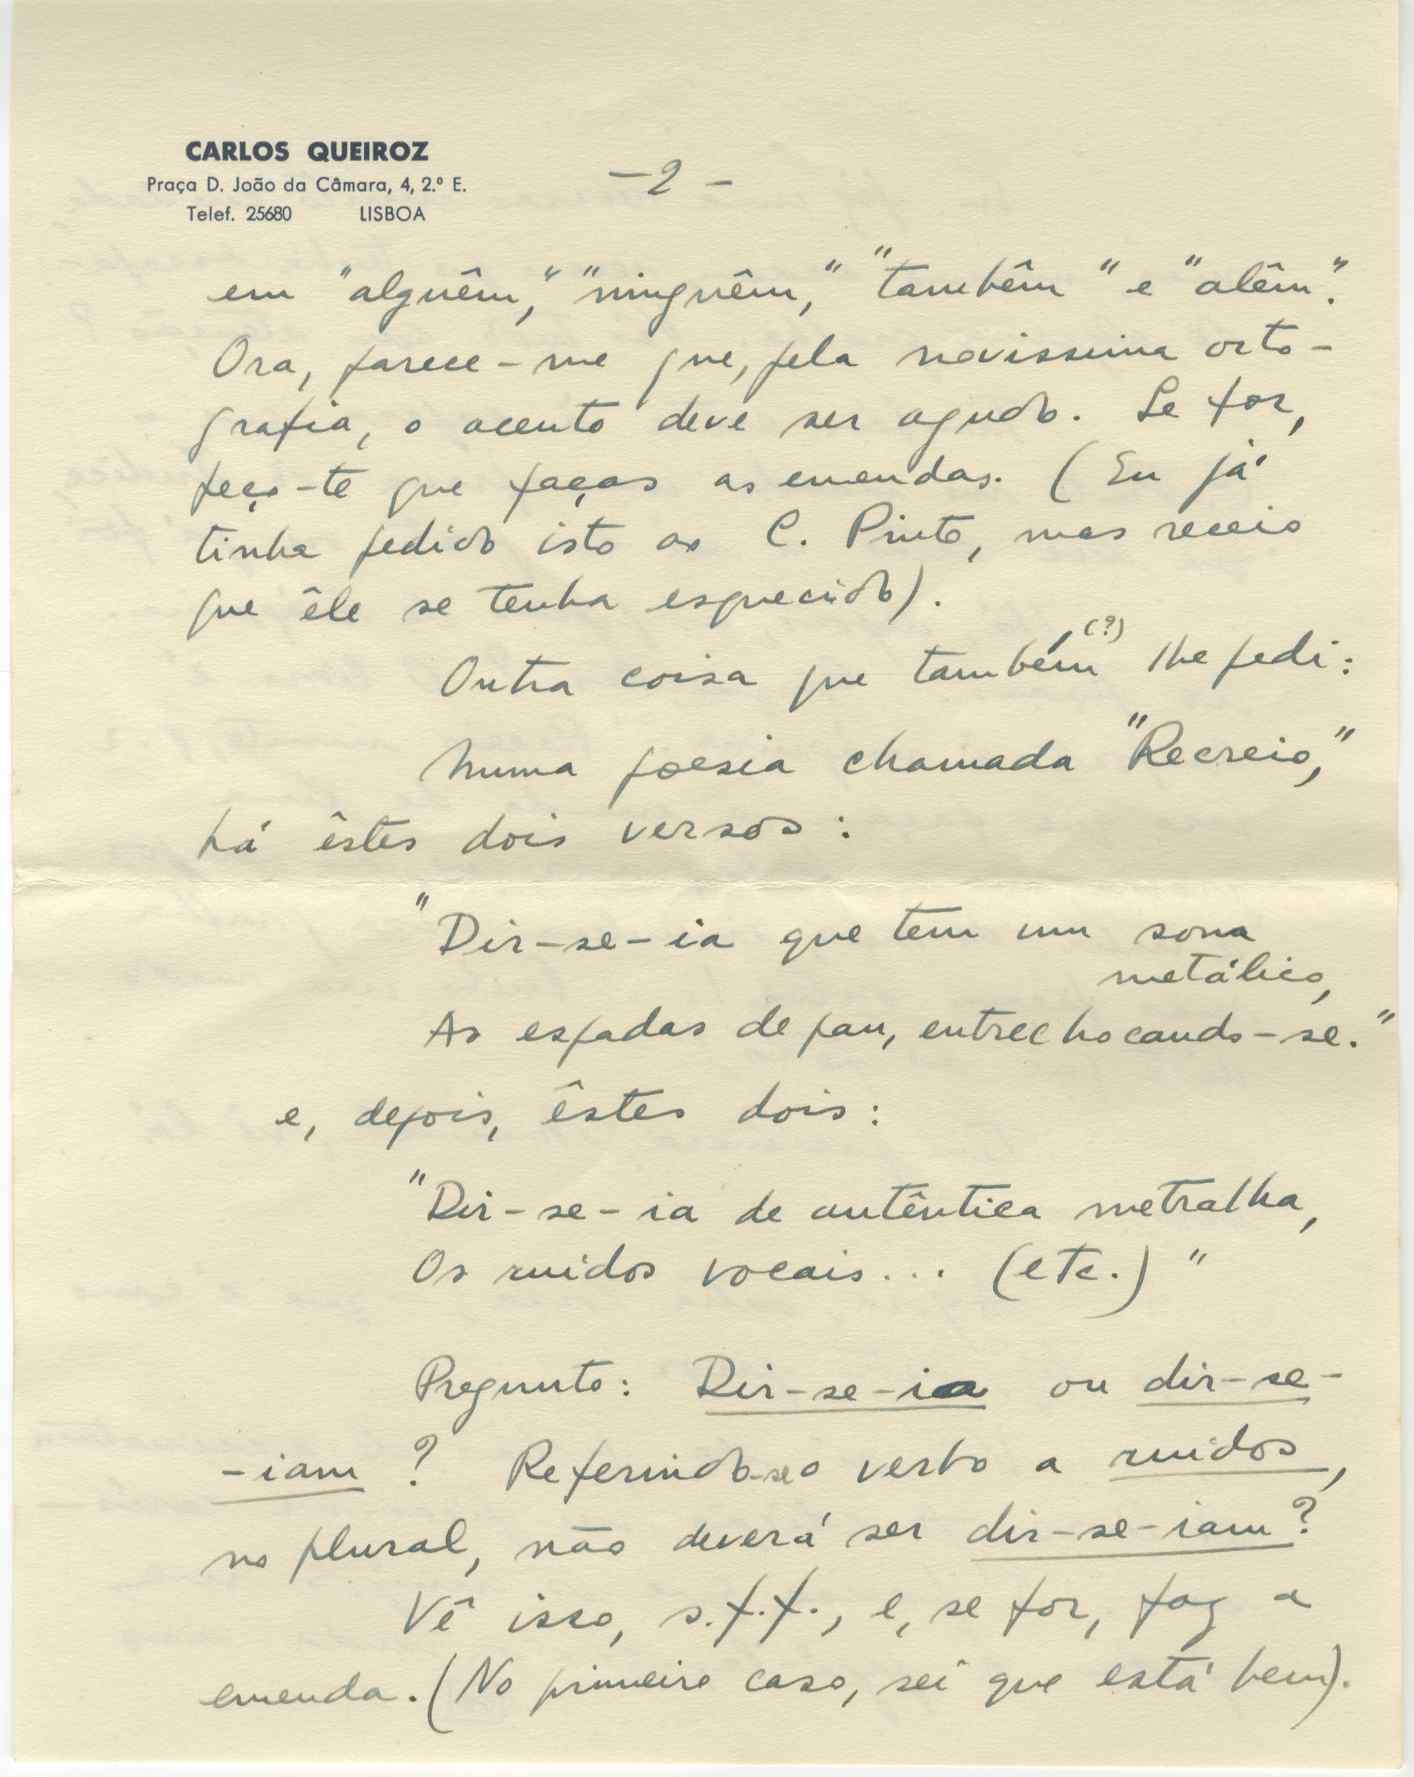 CARLOS QUEIROZ
Praça D. João da Câmara, 4, 2.º E.
Telef. 25680 LISBOA
—2—
em "alguêm," "ninguêm," "tambêm" e "alêm".
Ora, parece-me que, pela novissima orto-
grafia, o acento deve ser agudo. Se for,
peço-te que faças as emendas. (Eu já
tinha pedido isto ao C. Pinto, mas receio
que êle se tenha esquecido).
Outra coisa que também (?) lhe pedi:
Numa poesia chamada "Recreio,"
há êstes dois versos:
"Dir-se-ia que tem um som
metálico,
As espadas de pau, entrechocando-se."
e, depois, êstes dois:
"Dir-se-ia de autêntica metralha,
Os ruidos vocais... (etc.)"
Pregunto: Dir-se-ia ou dir-se-
-iam? Referindo-se o verbo a ruidos,
no plural, não deverá ser dir-se-iam?
Vê isso, s.f.f., e, se for, faz a
emenda. (No primeiro caso, sei que está bem).